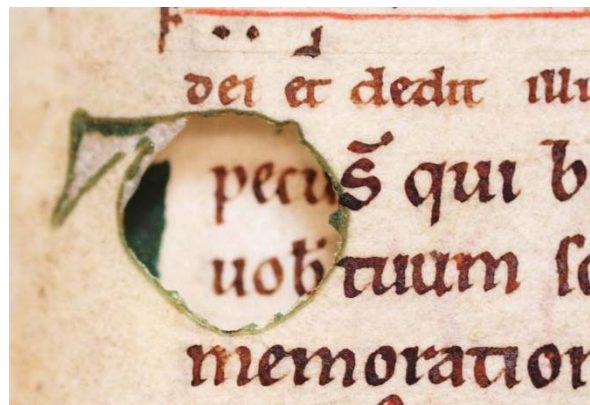 dei et dedit illu
pecus̄ qui b
uob̄ tuum sc
memoration